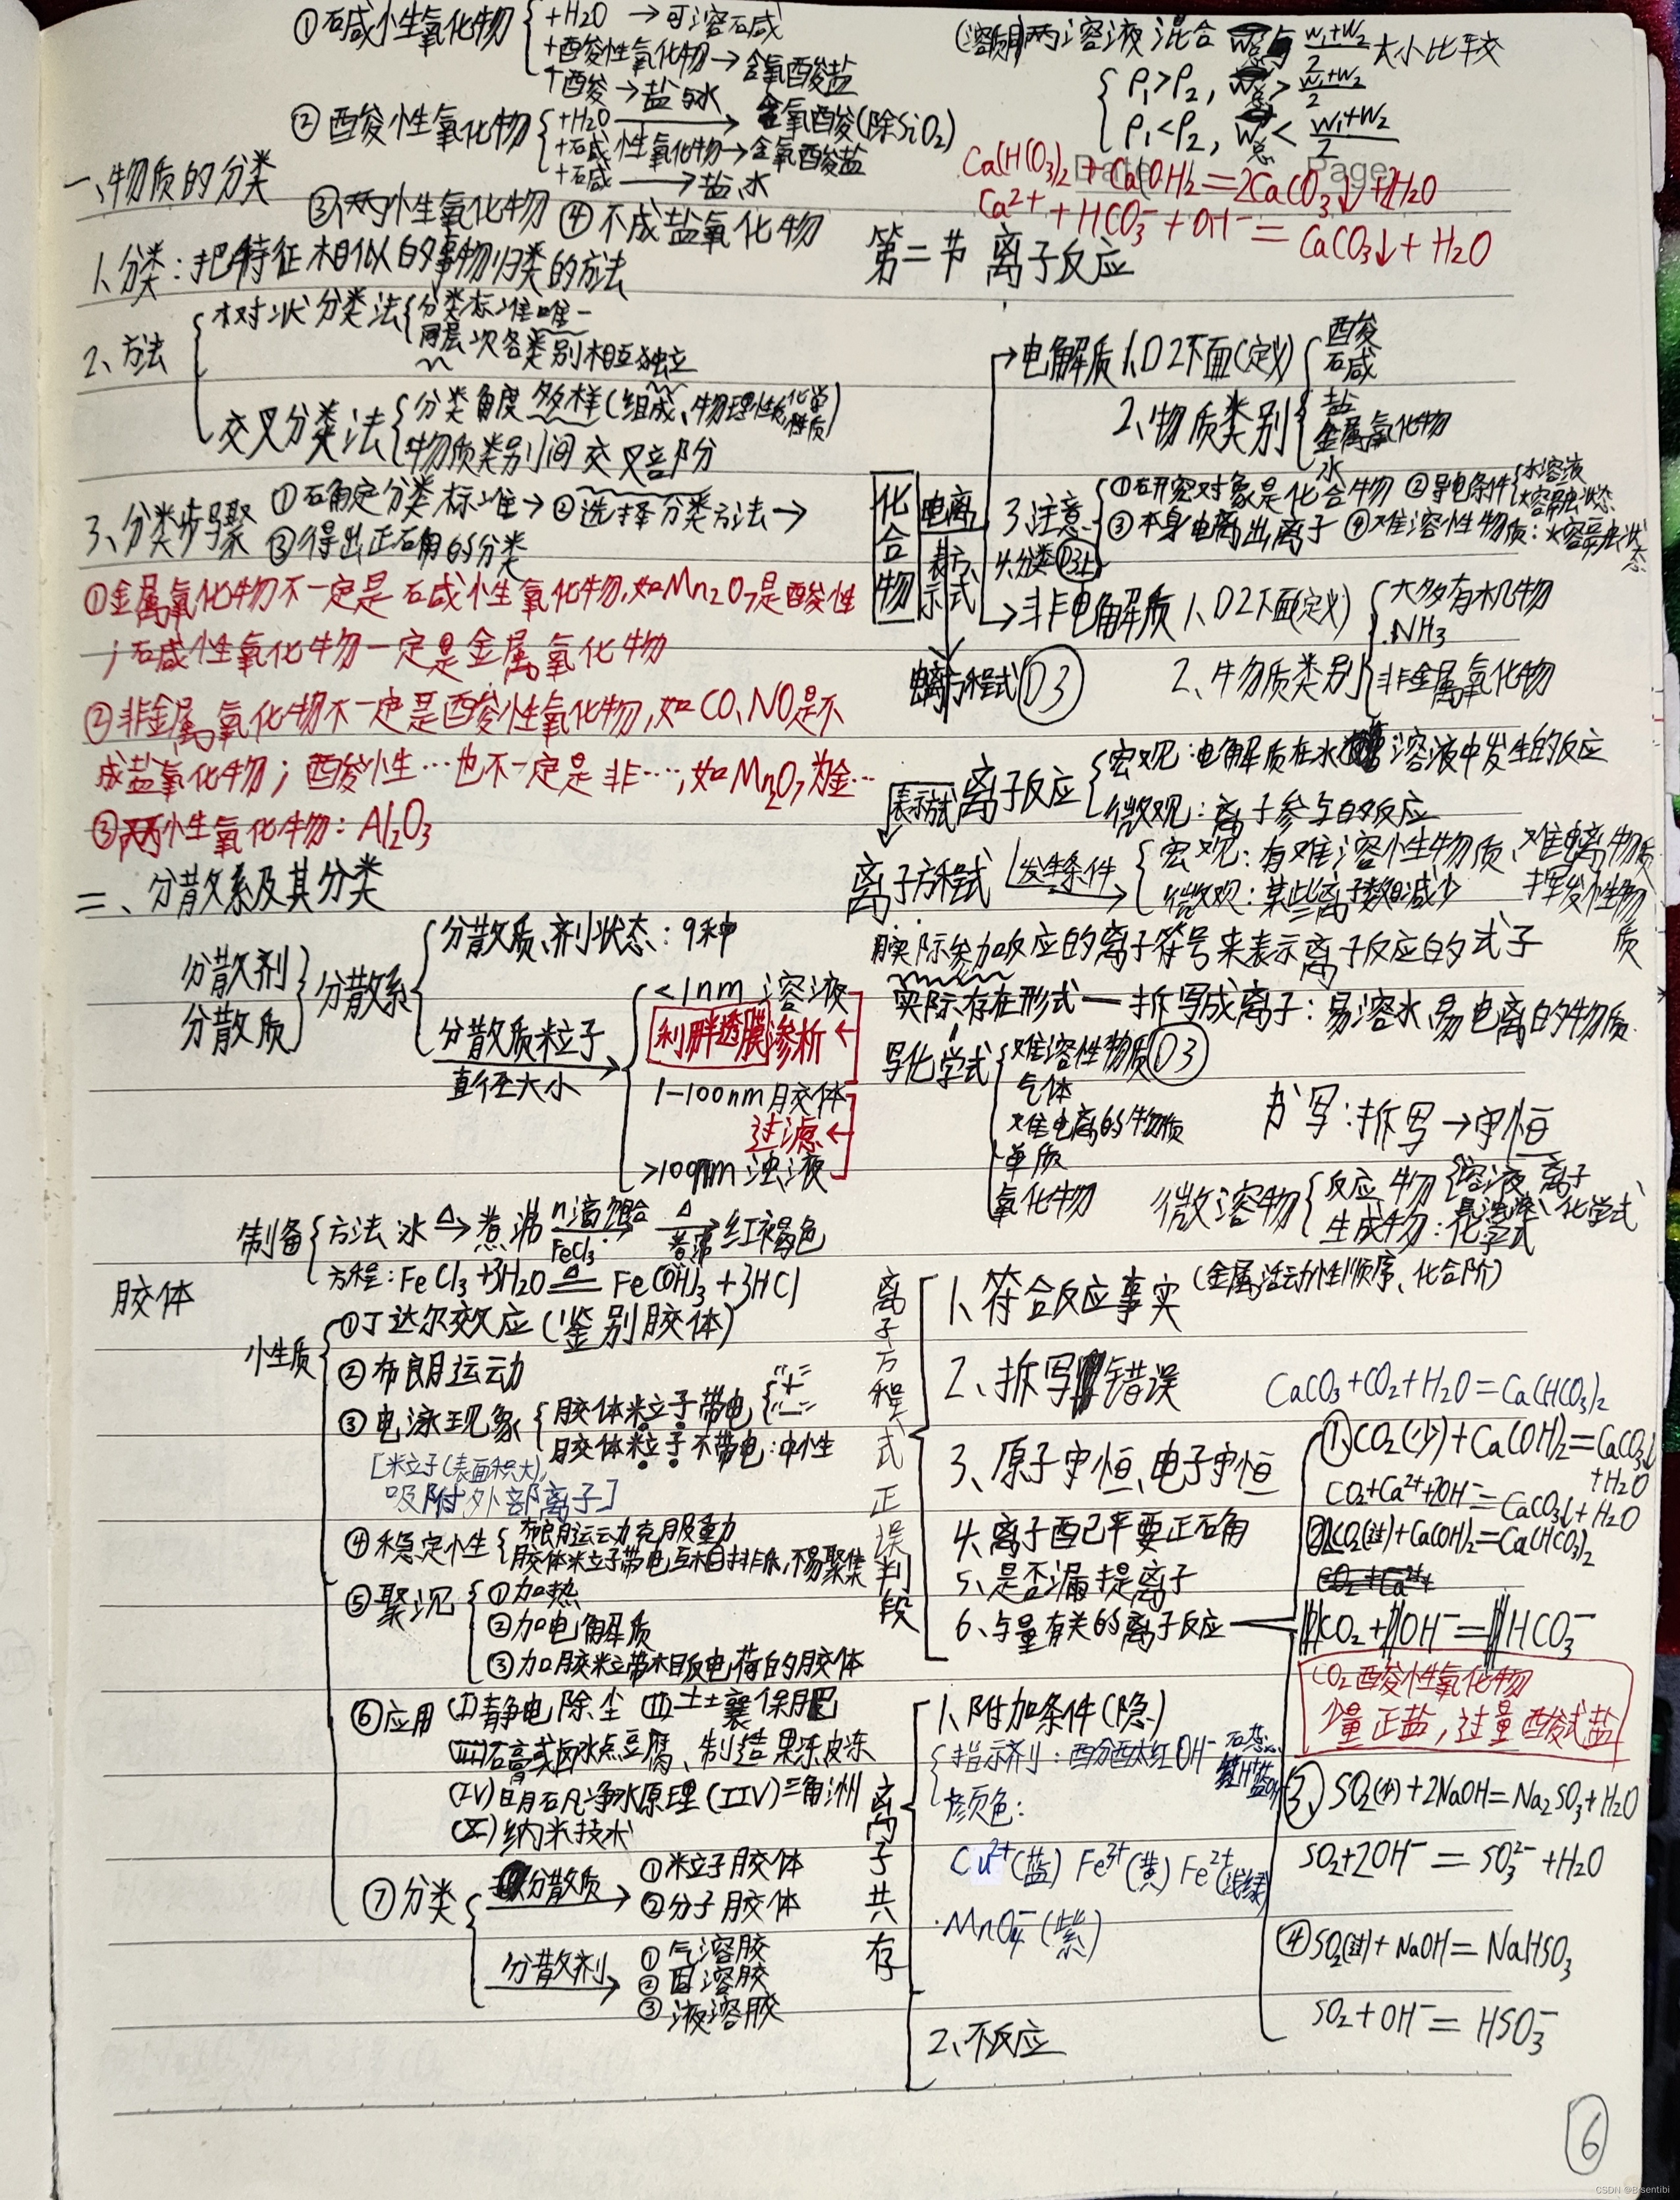 ①碱性氧化物
+H2O →可溶碱
+酸性氧化物→含氧酸盐
+酸→盐与水
②酸性氧化物
+H2O→含氧酸(除SiO2)
+碱性氧化物→含氧酸盐
+碱→盐、水
③两性氧化物 ④不成盐氧化物
一、物质的分类
1、分类：把特征相似的事物归类的方法
2、方法
树状分类法
分类标准唯一
同层次各类别相互独立
交叉分类法
分类角度多样(组成、物理性质、化学性质)
物质类别间交叉部分
3、分类步骤 ①确定分类标准→②选择分类方法→
③得出正确的分类
①金属氧化物不一定是碱性氧化物,如Mn2O7是酸性
；碱性氧化物一定是金属氧化物
②非金属氧化物不一定是酸性氧化物,如CO、NO是不
成盐氧化物；酸性…也不一定是非…,如Mn2O7为金…
③两性氧化物：Al2O3
二、分散系及其分类
分散剂
分散质
分散系
分散质、剂状态：9种
分散质粒子
直径大小
<1nm 溶液
利用半透膜渗析
1-100nm 胶体
过滤
>100nm 浊液
胶体
制备
方法 水 △→ 煮沸 n滴饱和FeCl3→ △煮沸→ 红褐色
方程：FeCl3+3H2O =△= Fe(OH)3+3HCl
性质
①丁达尔效应(鉴别胶体)
②布朗运动
③电泳现象
胶体粒子带电 "+" "-"
胶体粒子不带电：中性
[粒子(表面积大),
吸附外部离子]
④稳定性
布朗运动克服重力
胶体粒子带电互相排斥,不易聚集
⑤聚沉
①加热
②加电解质
③加胶粒带相反电荷的胶体
⑥应用 (I)静电除尘 (II)土壤保肥
(III)石膏或卤水点豆腐、制造果冻皮冻
(IV)明矾净水原理 (IIV)三角洲
(X)纳米技术
⑦分类
分散质
①粒子胶体
②分子胶体
分散剂
①气溶胶
②固溶胶
③液溶胶
(溶质同)两溶液混合 w总与 w1+w2/2 大小比较
ρ1>ρ2, w总> w1+w2/2
ρ1<ρ2, w总< w1+w2/2
Date Page
Ca(HCO3)2+Ca(OH)2=2CaCO3↓+2H2O
Ca2++HCO3-+OH-=CaCO3↓+H2O
第二节 离子反应
化合物
电离
表示式
电离方程式 D3
电解质 1、D2下面(定义)
2、物质类别
酸
碱
盐
金属氧化物
水
3、注意
①研究对象是化合物 ②导电条件 水溶液 熔融状态
③本身电离出离子 ④难溶性物质：熔融状态
4、分类 D3上
非电解质 1、D2下面(定义)
2、物质类别
大多有机物
NH3
非金属氧化物
离子反应
宏观：电解质在水溶液中发生的反应
微观：离子参与的反应
表示式
离子方程式
发生条件
宏观：有难溶性物质、难电离物质
挥发性物质
微观：某些离子数目减少
用实际参加反应的离子符号来表示离子反应的式子
实际存在形式—拆写成离子：易溶水、易电离的物质
写化学式
难溶性物质 D3
气体
难电离的物质
单质
氧化物
书写：拆写→守恒
微溶物
反应物
溶液 离子
悬浊液、化学式
生成物：化学式
离子方程式正误判段
1、符合反应事实(金属活动性顺序、化合阶)
2、拆写错误
3、原子守恒、电子守恒
4、离子配比要正确
5、是否漏提离子
6、与量有关的离子反应
CaCO3+CO2+H2O=Ca(HCO3)2
①CO2(少)+Ca(OH)2=CaCO3↓
+H2O
CO2+Ca2++2OH-=CaCO3↓+H2O
②2CO2(过)+Ca(OH)2=Ca(HCO3)2
CO2+OH-=HCO3-
CO2酸性氧化物
少量正盐,过量酸式盐
③SO2(少)+2NaOH=Na2SO3+H2O
SO2+2OH-=SO32-+H2O
④SO2(过)+NaOH=NaHSO3
SO2+OH-=HSO3-
离子共存
1、附加条件(隐)
指示剂：酚酞红OH-
颜色：
Cu2+(蓝) Fe3+(黄) Fe2+(浅绿)
MnO4-(紫)
2、不反应
6
CSDN @Bisentibi